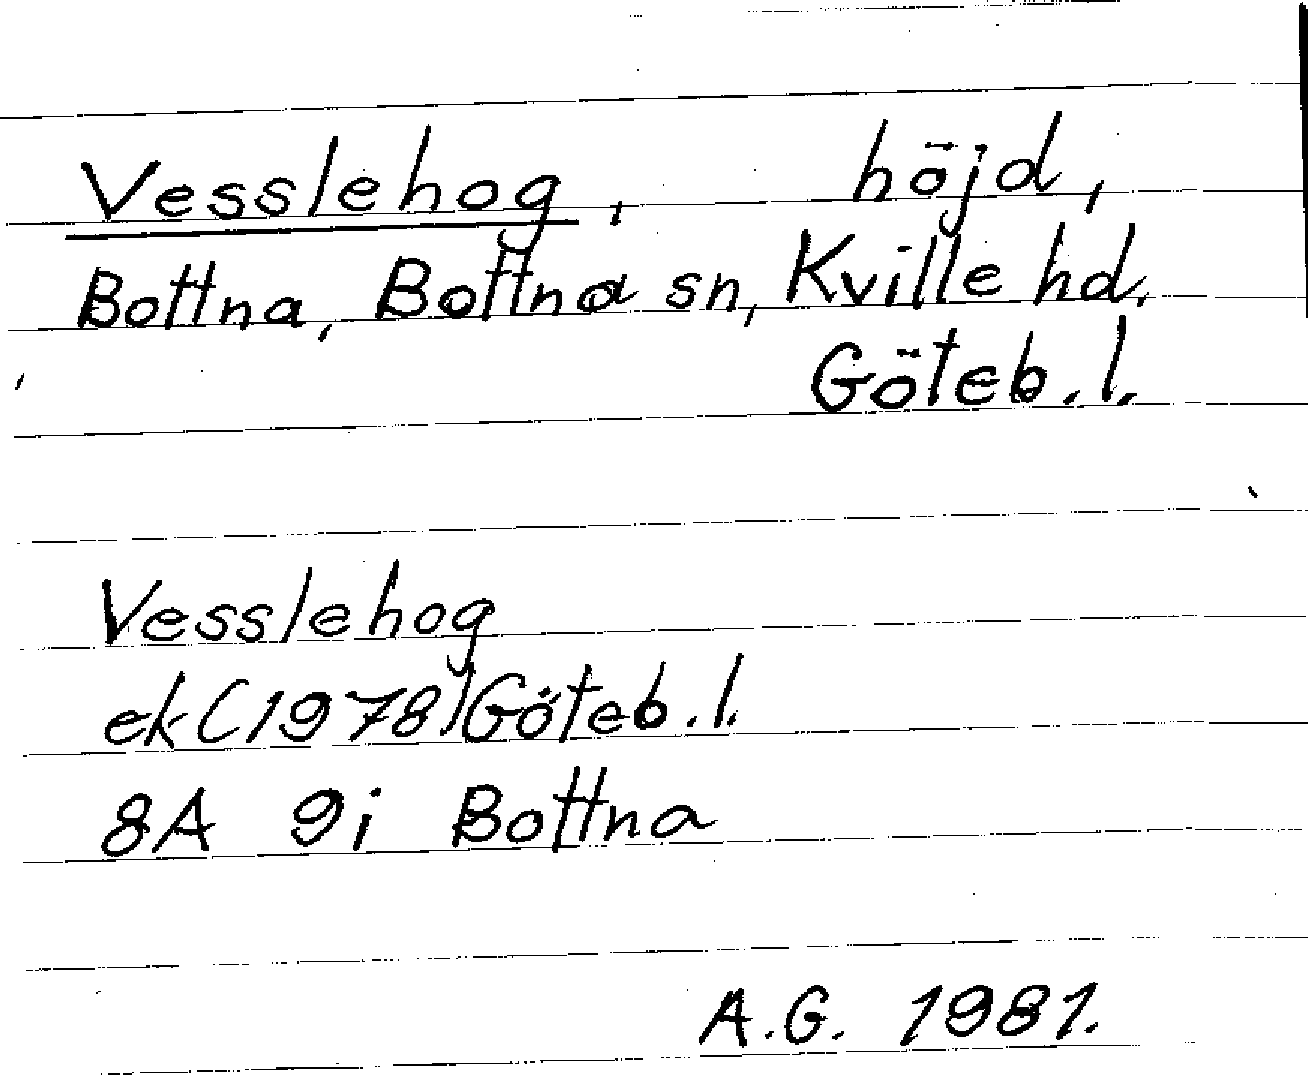 Vesslehog, höjd,
Bottna, Bottna sn, Kville hd.
Göteb. l.
Vesslehog
ek (1978) Göteb. l.
8A 9i Bottna
A.G. 1981.